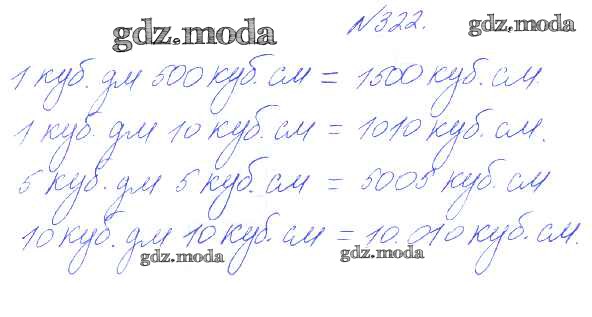 gdz.moda №322. gdz.moda
1 куб. дм 500 куб. см = 1500 куб. см
1 куб. дм 10 куб. см = 1010 куб. см.
5 куб. дм 5 куб. см = 5005 куб. см
10 куб. дм 10 куб. см = 10.010 куб. см.
gdz.moda gdz.moda